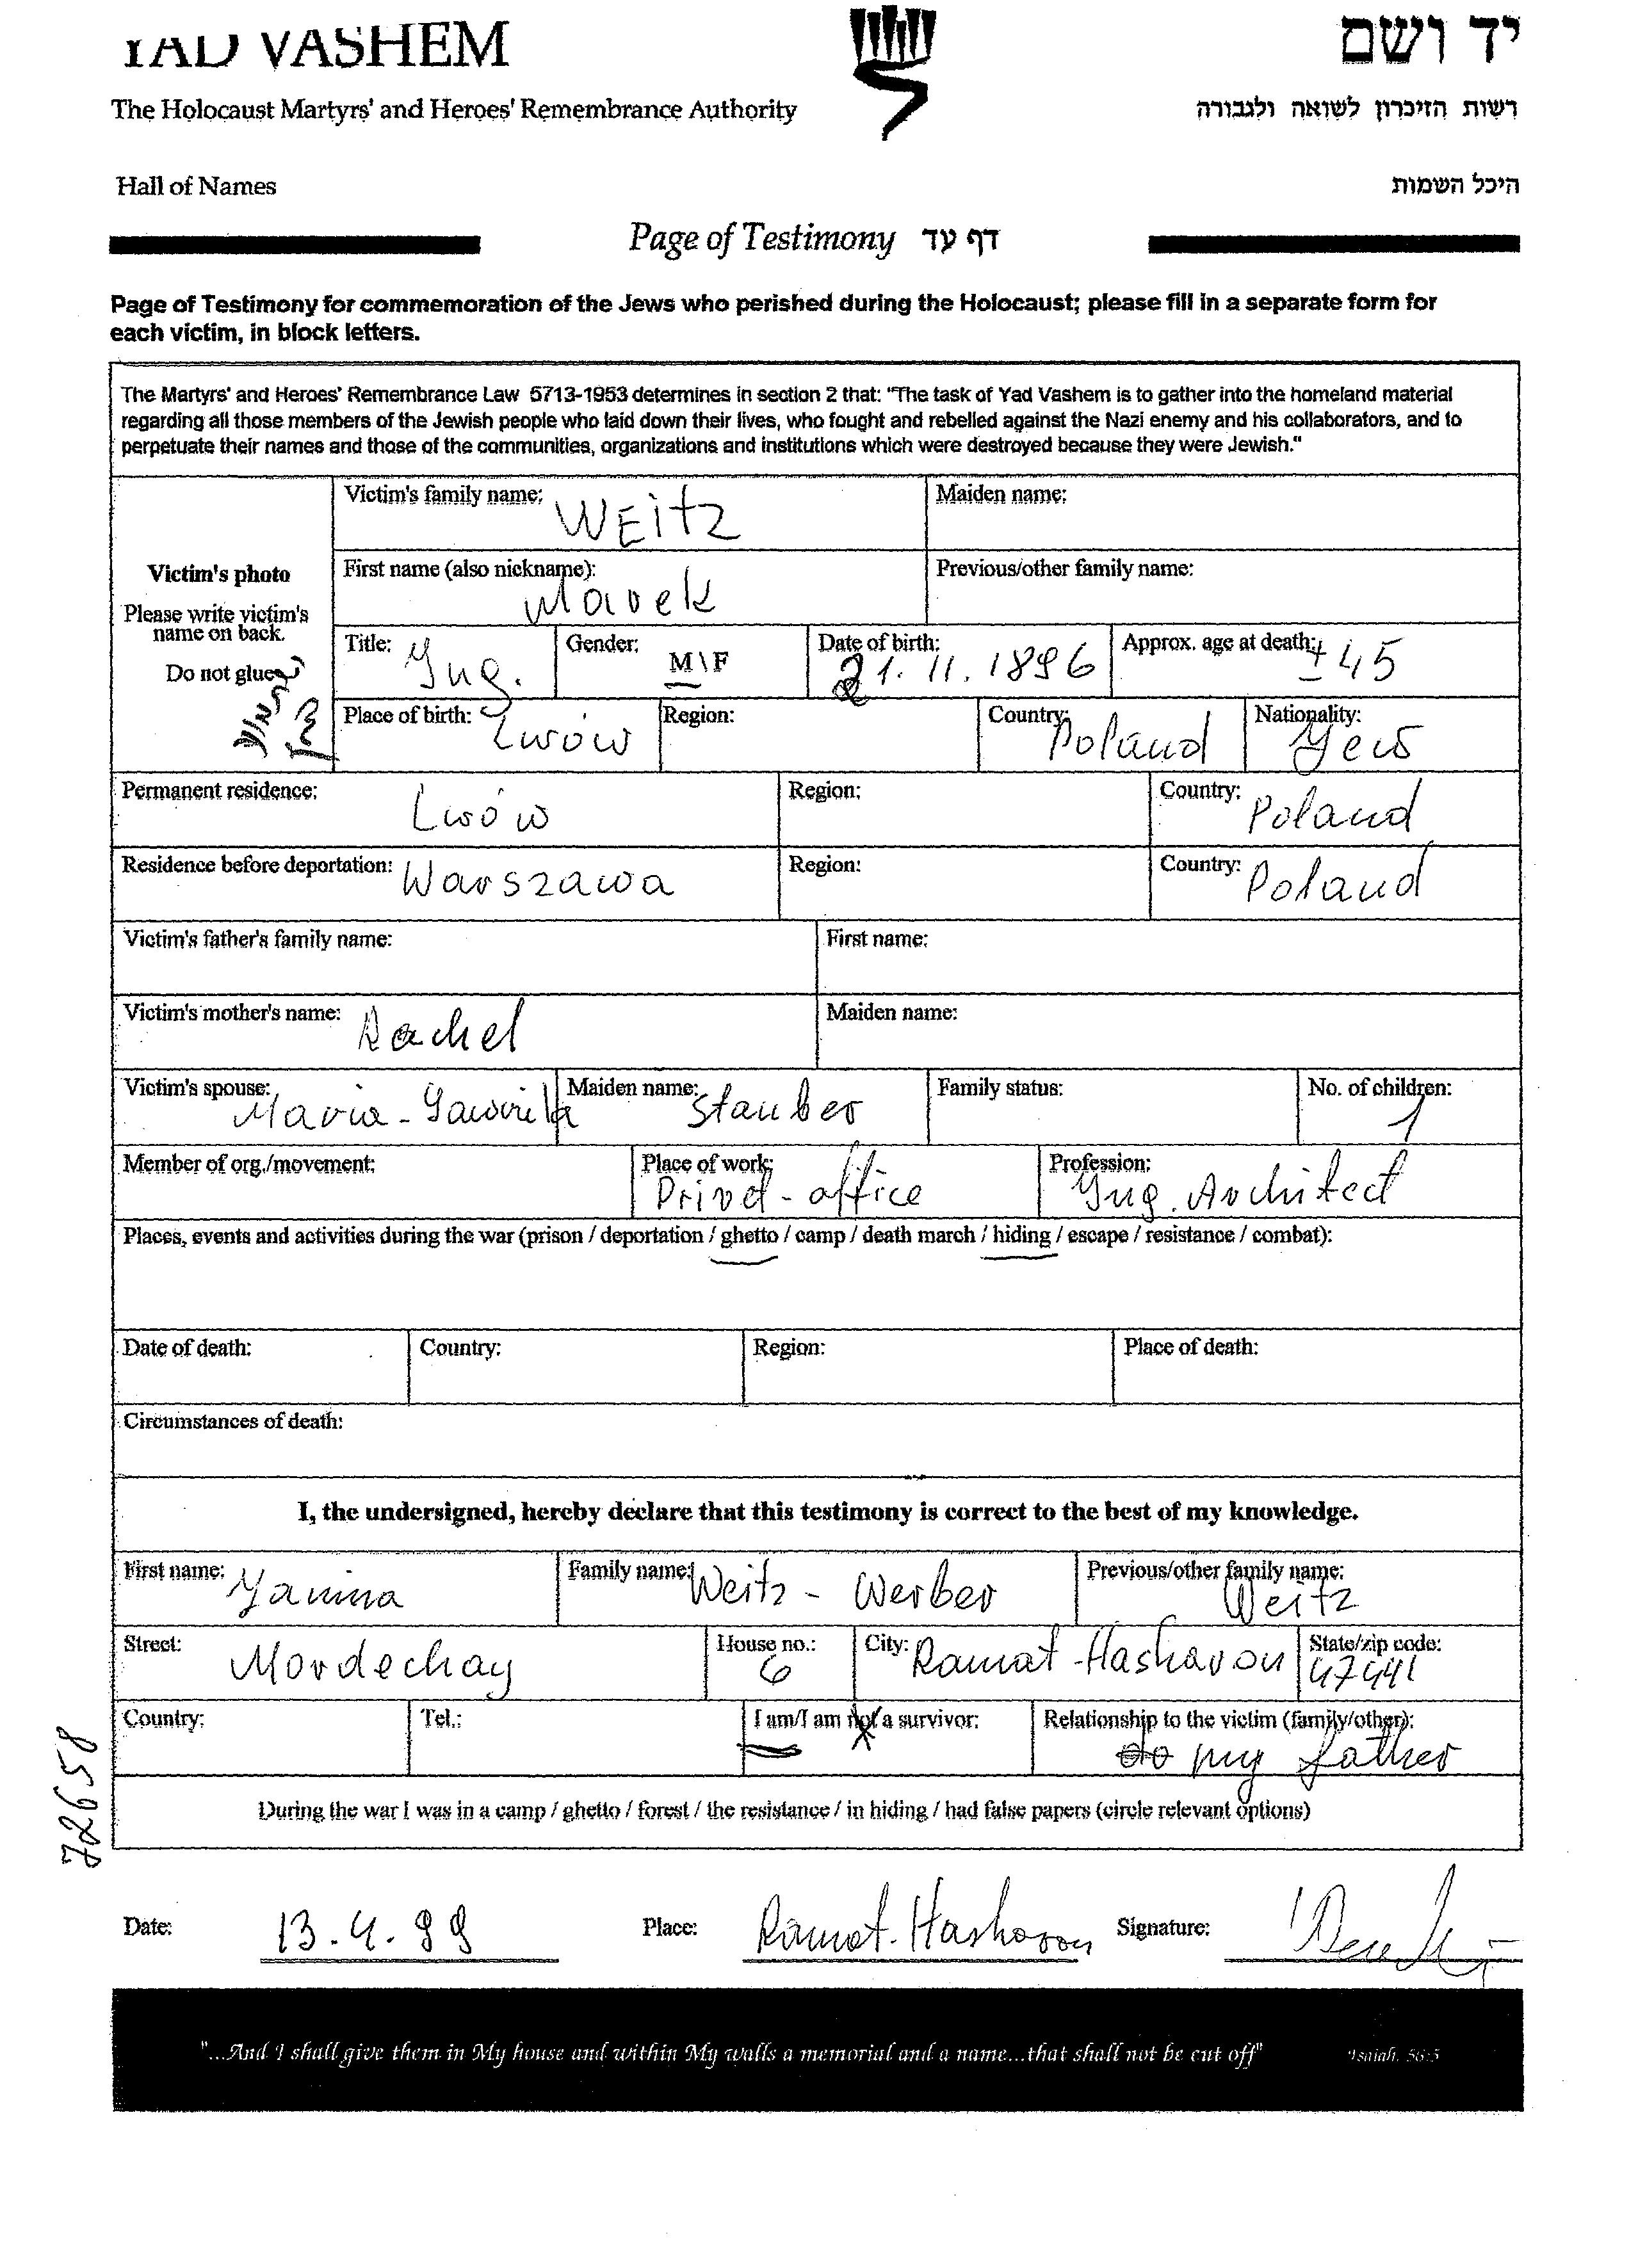 YAD VASHEM
יד ושם
The Holocaust Martyrs' and Heroes' Remembrance Authority
רשות הזיכרון לשואה ולגבורה
Hall of Names
היכל השמות
Page of Testimony דף עד
Page of Testimony for commemoration of the Jews who perished during the Holocaust; please fill in a separate form for
each victim, in block letters.
The Martyrs' and Heroes' Remembrance Law 5713-1953 determines in section 2 that: "The task of Yad Vashem is to gather into the homeland material
regarding all those members of the Jewish people who laid down their lives, who fought and rebelled against the Nazi enemy and his collaborators, and to
perpetuate their names and those of the communities, organizations and institutions which were destroyed because they were Jewish."
Victim's photo
Please write victim's
name on back.
Do not glue
Victim's family name: WEitz Maiden name:
First name (also nickname): Marek Previous/other family name:
Title: Ing. Gender: M\F Date of birth: 21.11.1896 Approx. age at death: ± 45
Place of birth: Lwów Region: Country: Poland Nationality: Yew
Permanent residence: Lwów Region: Country: Poland
Residence before deportation: Warszawa Region: Country: Poland
Victim's father's family name: First name:
Victim's mother's name: Rachel Maiden name:
Victim's spouse: Maria- Maiden name: Stauber Family status: No. of children: 1
Member of org./movement: Place of work: Privat-office Profession: Ing. Architect
Places, events and activities during the war (prison / deportation / ghetto / camp / death march / hiding / escape / resistance / combat):
Date of death: Country: Region: Place of death:
Circumstances of death:
I, the undersigned, hereby declare that this testimony is correct to the best of my knowledge.
First name: Yanina Family name: Weitz - Werber Previous/other family name: Weitz
Street: Mordechay House no.: 6 City: Ramat-Hasharon State/zip code: 47441
Country: Tel.: I am/I am not a survivor: Relationship to the victim (family/other): my father
During the war I was in a camp / ghetto / forest / the resistance / in hiding / had false papers (circle relevant options)
72658
Date: 13.4.99 Place: Ramat-Hasharon Signature:
"...And I shall give them in My house and within My walls a memorial and a name...that shall not be cut off" Isaiah, 56:5